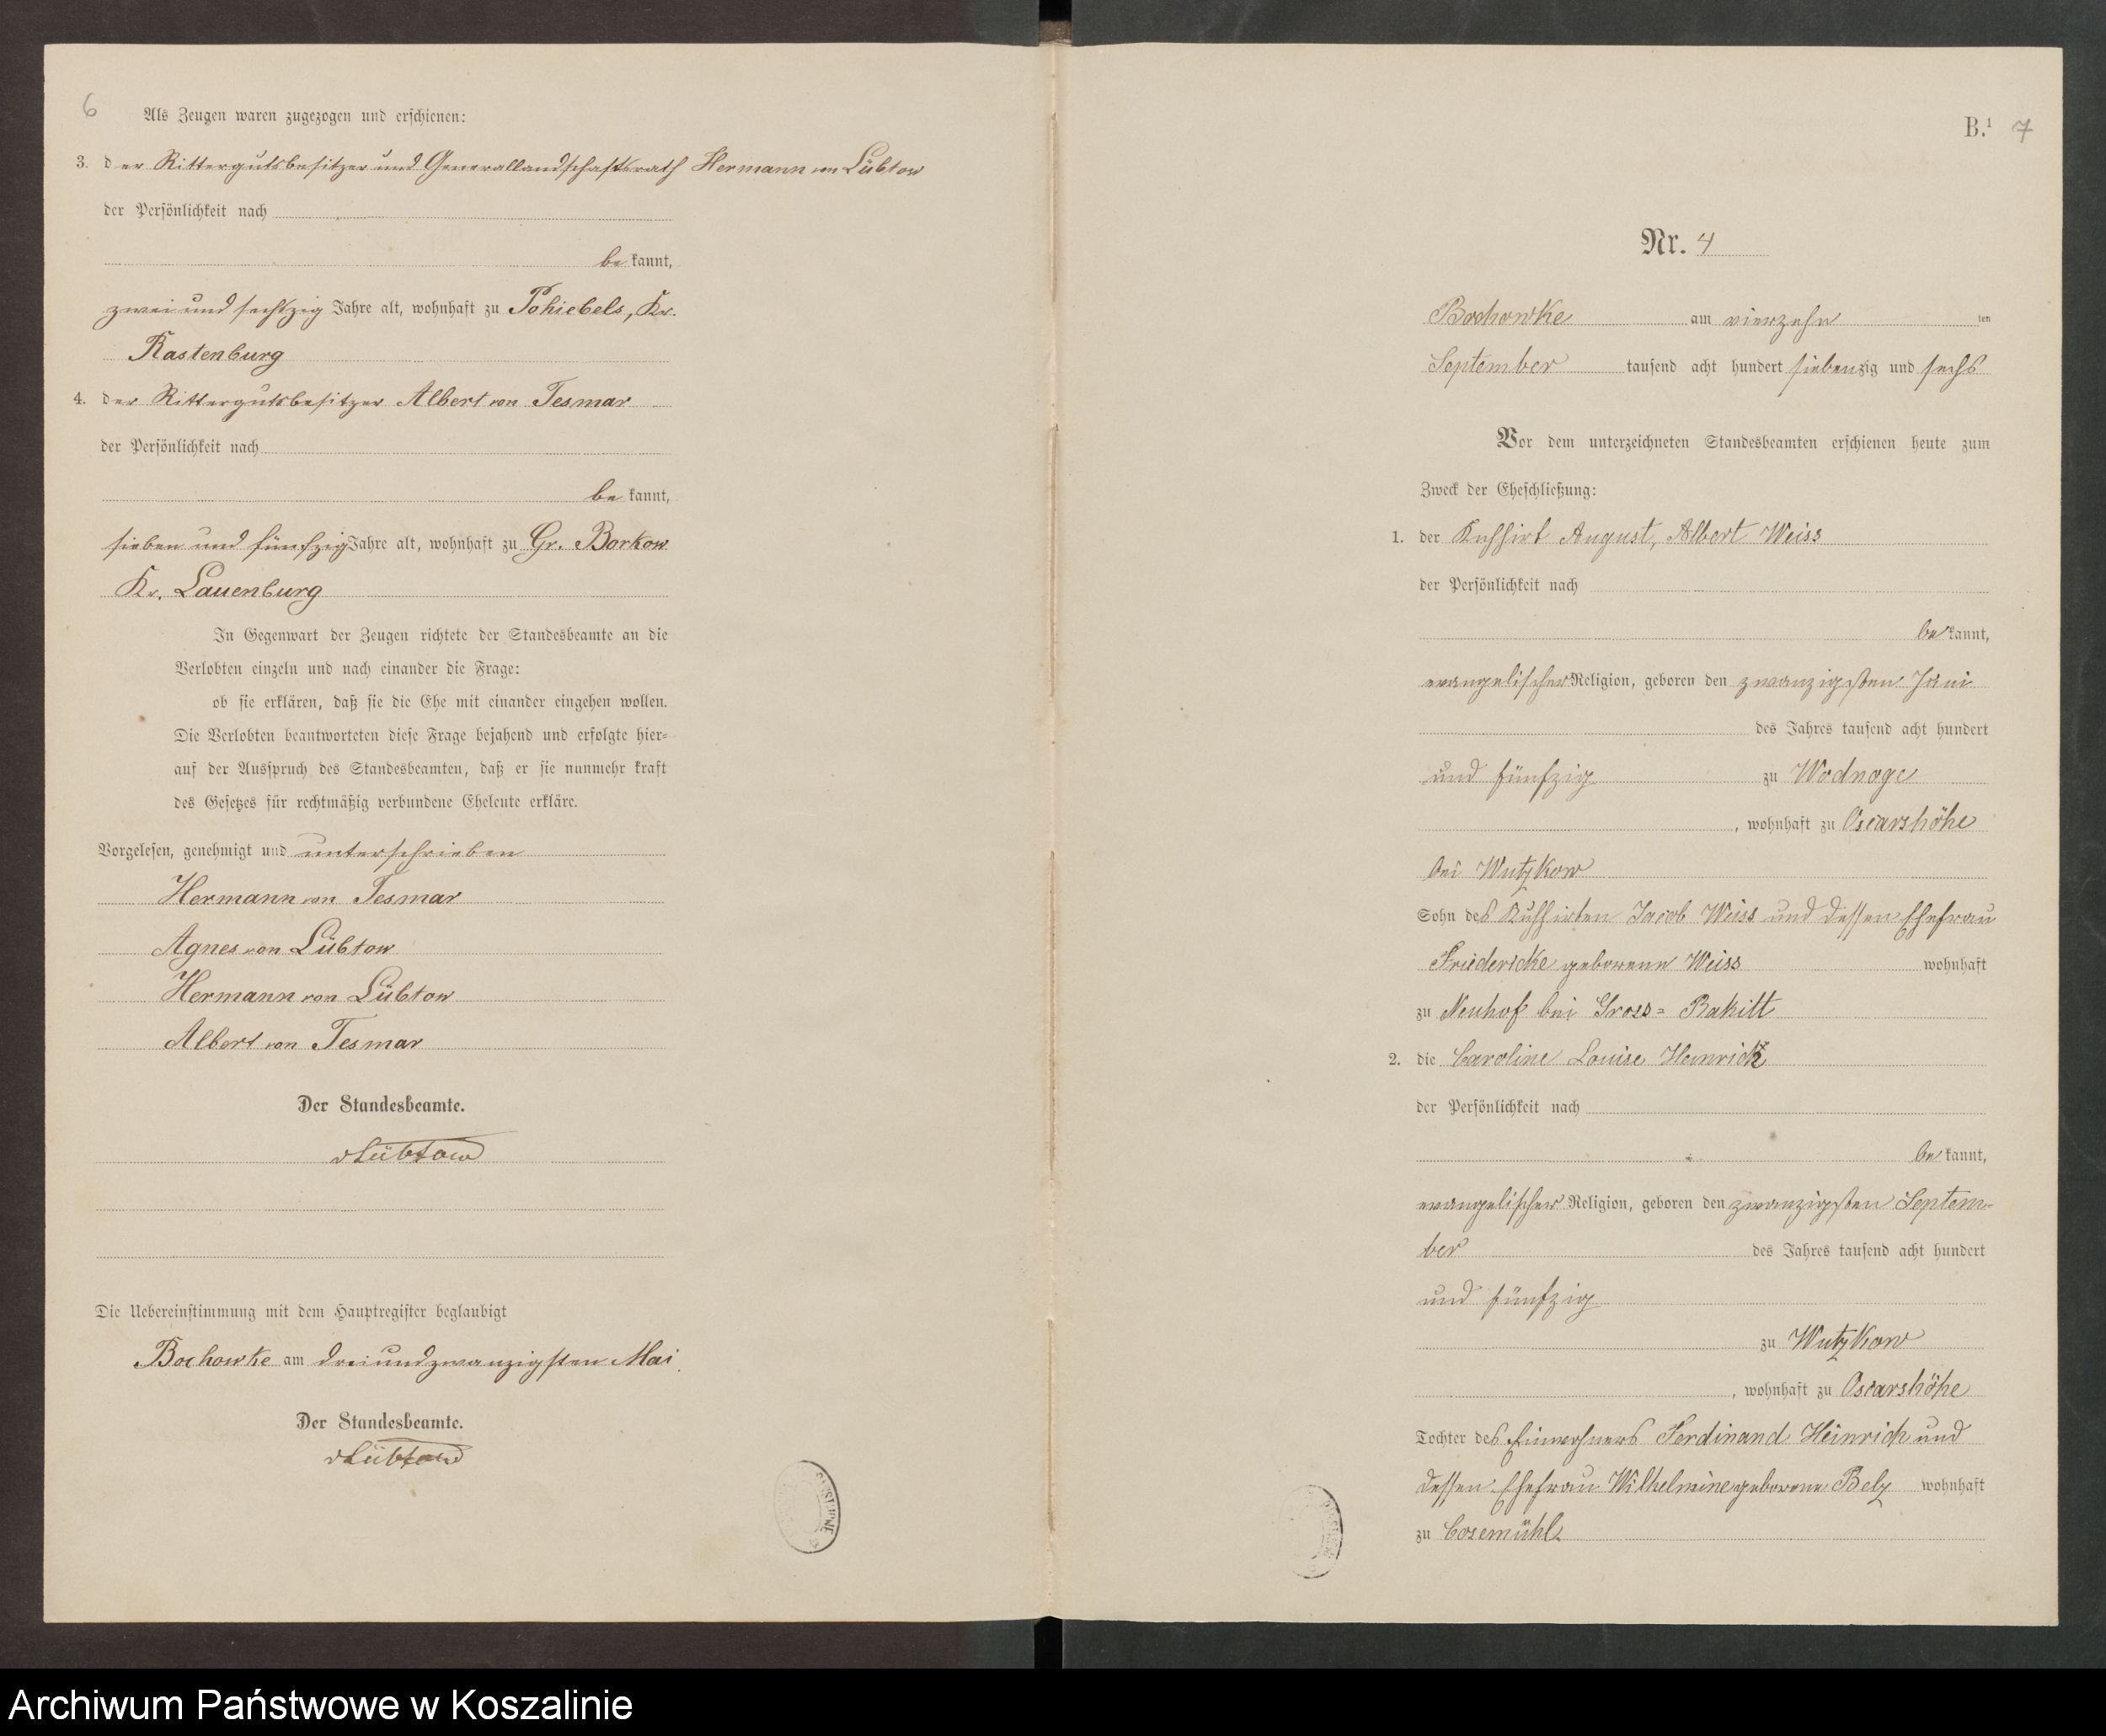 6
Als Zeugen waren zugezogen und erschienen:
3. der Rittergutsbesitzer und Generallandschaftsrath Hermann von Lübtow
der Persönlichkeit nach
be kannt,
zwei und sechszig Jahre alt, wohnhaft zu Pohiebels, Kr.
Rastenburg
4. der Rittergutsbesitzer Albert von Tesmar
der Persönlichkeit nach
be kannt,
sieben und fünfzig Jahre alt, wohnhaft zu Gr. Borkow
Kr. Lauenburg
In Gegenwart der Zeugen richtete der Standesbeamte an die
Verlobten einzeln und nach einander die Frage:
ob sie erklären, daß sie die Ehe mit einander eingehen wollen.
Die Verlobten beantworteten diese Frage bejahend und erfolgte hier=
auf der Ausspruch des Standesbeamten, daß er sie nunmehr kraft
des Gesetzes für rechtmäßig verbundene Eheleute erkläre.
Vorgelesen, genehmigt und unterschrieben
Hermann von Tesmar
Agnes von Lübtow
Hermann von Lübtow
Albert von Tesmar
Der Standesbeamte.
vLübtow
Die Uebereinstimmung mit dem Hauptregister beglaubigt
Bochowke am dreiundzwanzigsten Mai.
Der Standesbeamte.
vLübtow
B.1 7
Nr. 4
Bochowke am vierzehn ten
September tausend acht hundert siebenzig und sechs
Vor dem unterzeichneten Standesbeamten erschienen heute zum
Zweck der Eheschließung:
1. der Kuhhirt August, Albert Weiss
der Persönlichkeit nach
be kannt,
evangelischer Religion, geboren den zwanzigsten Juni
des Jahres tausend acht hundert
und fünfzig zu Wodnoge
, wohnhaft zu Oscarshöhe
bei Wutzkow
Sohn des Kuhhirten Jacob Weiss und dessen Ehefrau
Friedericke geborene Weiss wohnhaft
zu Neuhof bei Gross= Rakitt
2. die Caroline Louise Heinrich
der Persönlichkeit nach
be kannt,
evangelischer Religion, geboren den zwanzigsten Septem-
ber des Jahres tausend acht hundert
und fünfzig
zu Wutzkow
, wohnhaft zu Oscarshöhe
Tochter des Einwohners Ferdinand Heinrich und
dessen Ehefrau Wilhelmine geborene Belz wohnhaft
zu Cosemühl
Archiwum Państwowe w Koszalinie